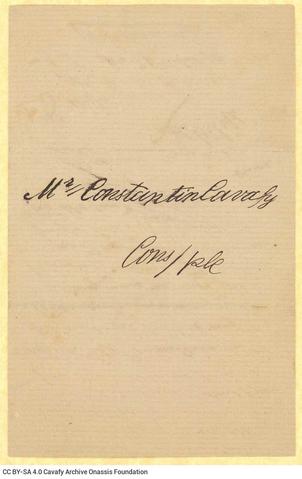 Mr/ Constantin Cavafy
Cons/ple
CC BY-SA 4.0 Cavafy Archive Onassis Foundation